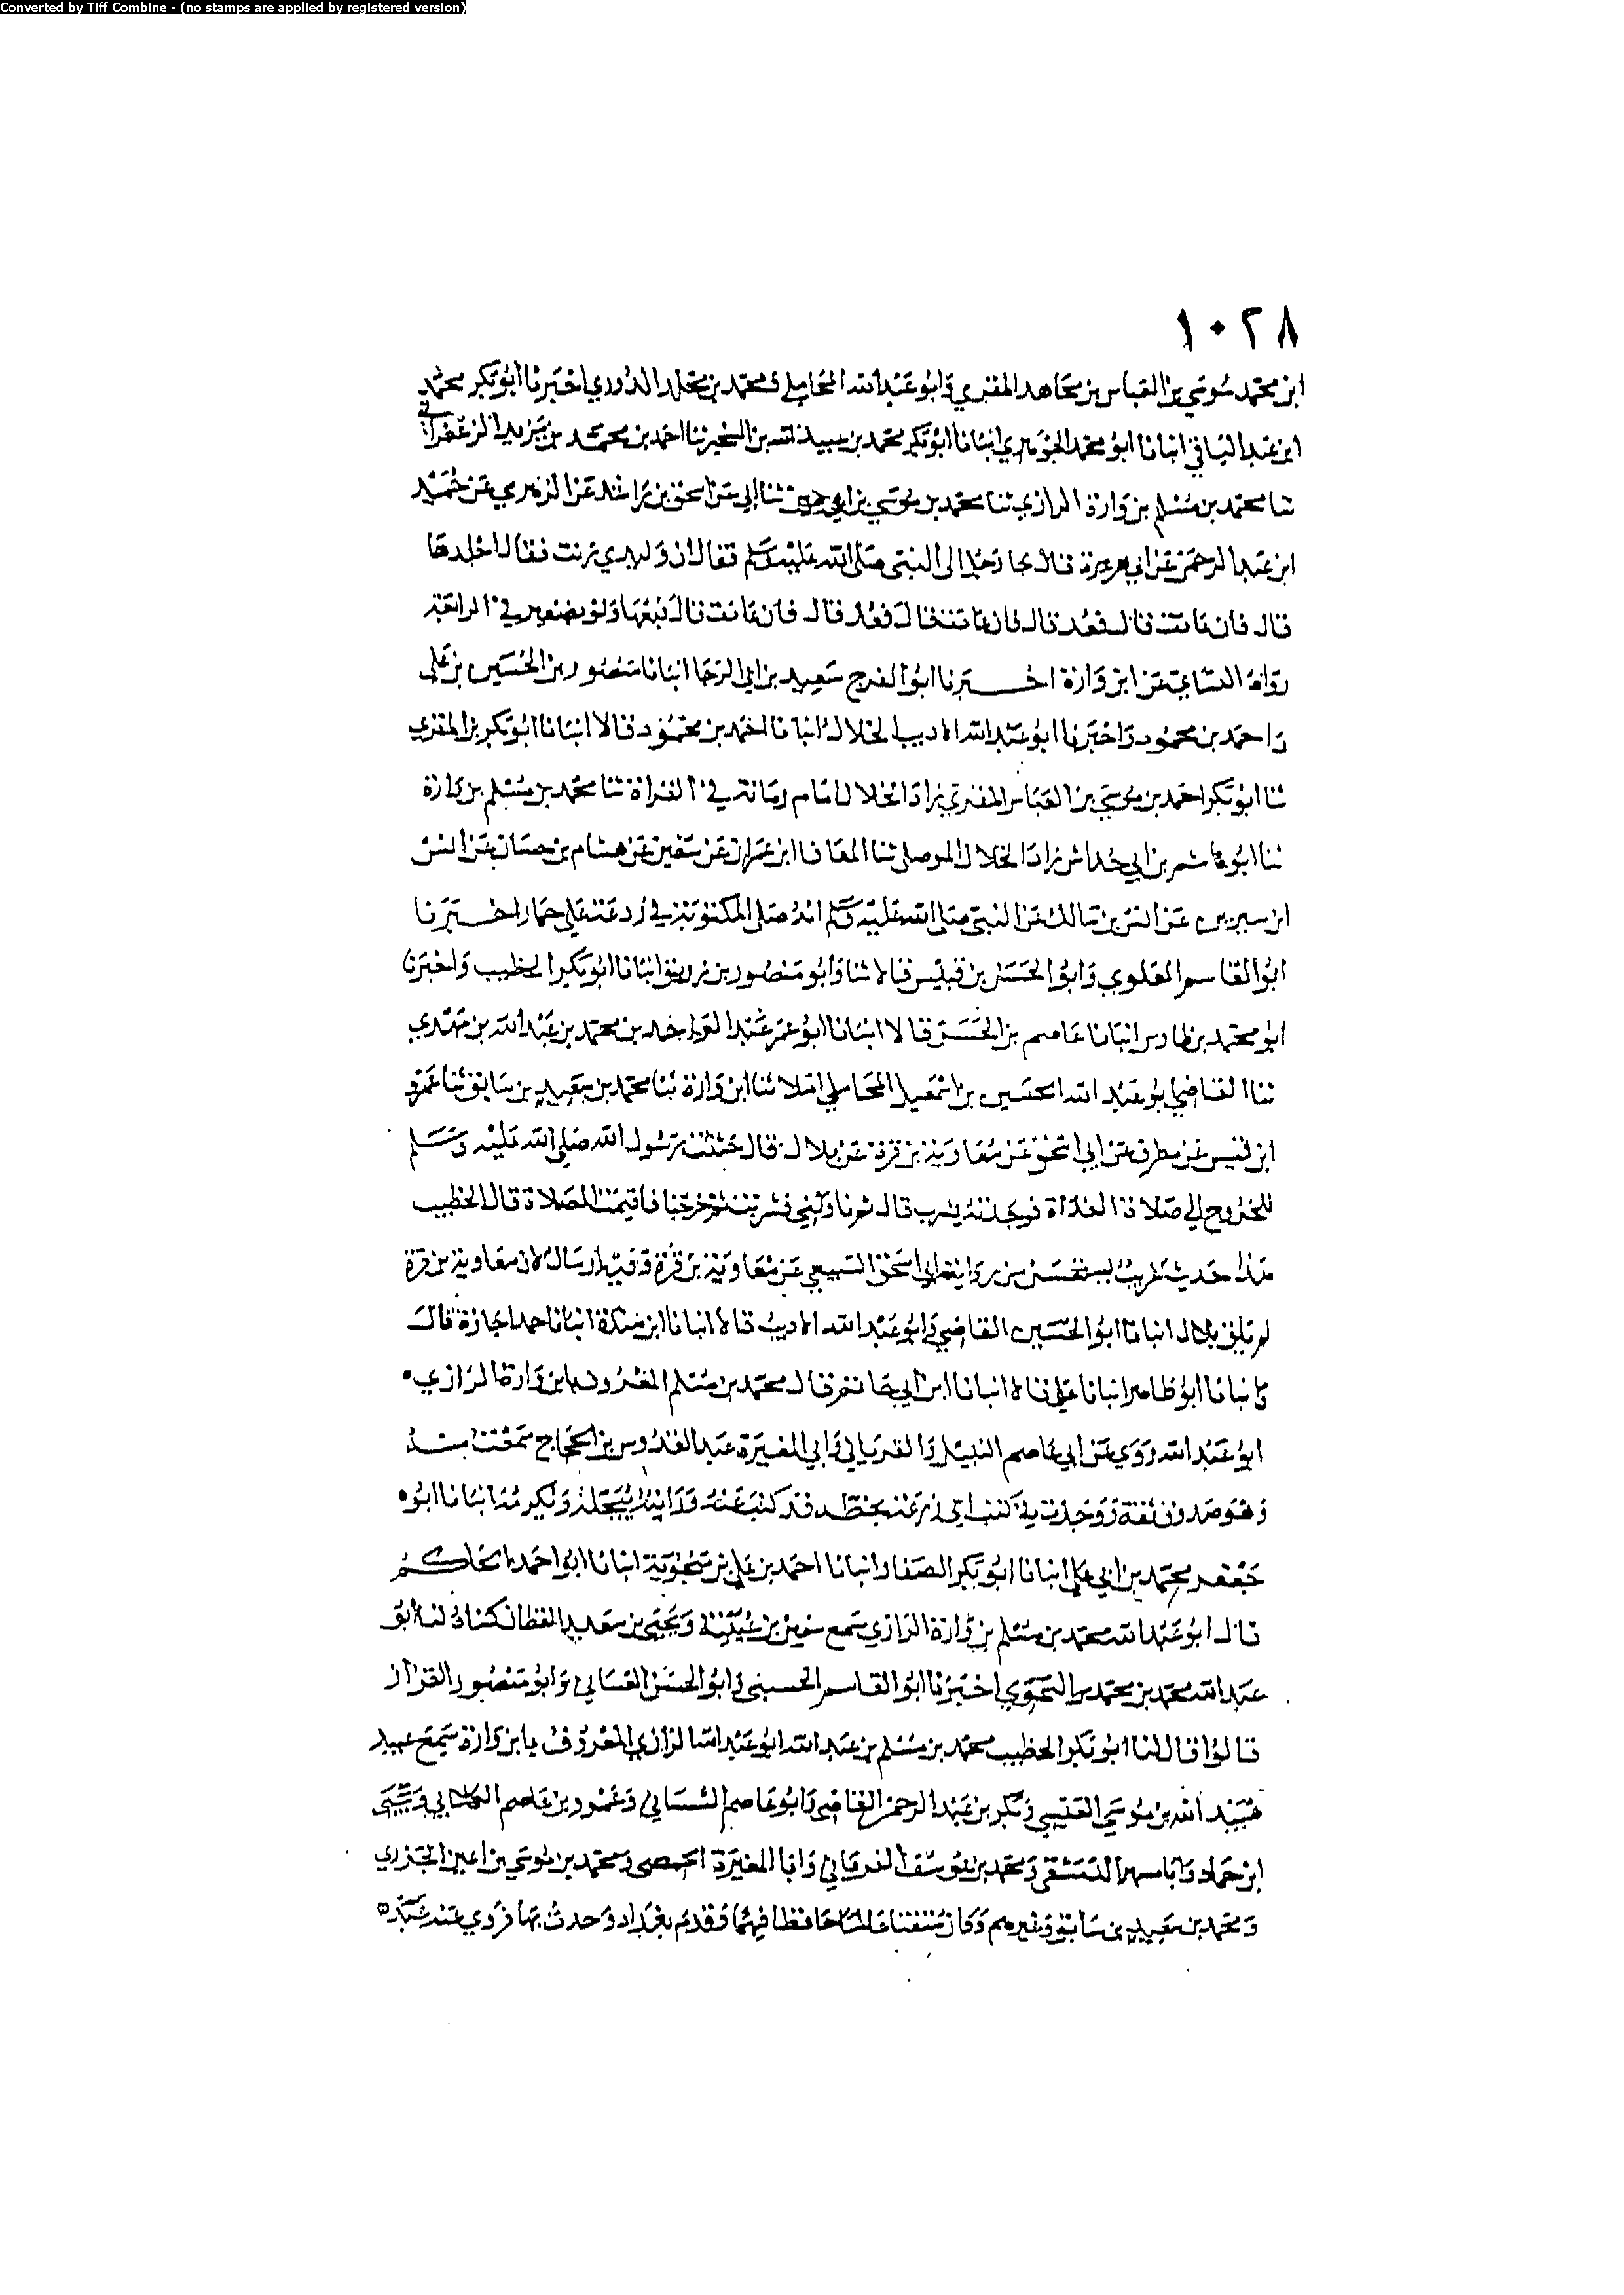 Converted by Tiff Combine - (no stamps are applied by registered version)
١٠٢٨
ابن محمد موسي بن العباس بن مجاهد المقري وابو عبد الله المحاملي ومحمد بن مخلد الدوري اخبرنا ابو بكر محمد
ابن عبد الباقي انبانا ابو محمد الجوهري انبانا ابو بكر محمد بن عبيد الله بن الشخير ثنا احمد بن محمد بن يزيد الزعفراني
ثنا محمد بن مسلم بن وارة الرازي ثنا محمد بن موسي بن اعين ثنا ابي عن اسحق بن راشد عن الزهري عن حميد
ابن عبد الرحمن عن ابي هريرة قال جا رجل الى النبي صلى الله عليه وسلم فقال ان وليدتي زنت فقال اجلدها
قال فان عادت قال فعد قال فان عادت قال فعد قال فان عادت قال بعها ولو بضفير في الرابعة
رواه النساي عن ابن وارة اخبرنا ابو الفرج سعيد بن ابي الرجا انبانا منصور بن الحسين بن علي
واحمد بن محمود واخبرنا ابو عبد الله الاديب الخلال انبانا احمد بن محمود قالا انبانا ابو بكر بن المقري
ثنا ابو بكر احمد بن موسي بن العباس المقري زاد الخلال امام زمانه في القراة ثنا محمد بن مسلم بن وارة
ثنا ابو هاشم بن ابي خداش زاد الخلال الموصلي ثنا المعافا ابن عمران عن سفين عن هشام بن حسان عن انس
ابن سيرين عن انس بن مالك عن النبي صلى الله عليه وسلم انه صلى المكتوبة في ردغة على حمار اخبرنا
ابو القاسم العلوي وابو الحسن بن قبيس قالا ثنا وابو منصور بن زريق انبانا ابو بكر الخطيب واخبرنا
ابو محمد بن طاوس انبانا عاصم بن الحسن قالا انبانا ابو عمر عبد الواحد بن محمد بن عبد الله بن مهدي
ثنا القاضي ابو عبد الله الحسين بن اسمعيل المحاملي املا ثنا ابن وارة ثنا محمد بن سعيد بن سابق ثنا عمرو
ابن قيس عن مطرف عن ابي اسحق عن معاوية بن قرة عن بلال قال جئت رسول الله صلى الله عليه وسلم
للخروج الي صلاة الغداة فوجدته يشرب قال ثم ناولني فشربت ثم خرجنا فاقيمت الصلاة قال الخطيب
هذا حديث غريب يستحسن من رواية ابي اسحق السبيعي عن معاوية بن قرة وفيه ارسال لان معاوية بن قرة
لم يلق بلالا انبانا ابو الحسين القاضي وابو عبد الله الاديب قالا انبانا ابن مندة انبانا حمد اجازة قال
وانبانا ابو طاهر انبانا علي قالا انبانا ابن ابي حاتم قال محمد بن مسلم المعروف بابن وارة الرازي
ابو عبد الله روي عن ابي عاصم النبيل والفريابي وابي المغيرة عبد القدوس بن الحجاج سمعت منه
وهو صدوق ثقة ووجدت في كتب ابي زرعة بخطه قد كتب عنه ورايته يبجله ويكرمه انبانا ابو
جعفر محمد بن ابي علي انبانا ابو بكر الصفار انبانا احمد بن علي بن منجويه انبانا ابو احمد الحاكم
قال ابو عبد الله محمد بن مسلم بن وارة الرازي سمع سفين بن عيينة ويحيى بن سعيد القطان كناه لنا ابو
عبد الله محمد بن محمد بن النحوي اخبرنا ابو القاسم الحسيني وابو الحسن الغساني وابو منصور القزاز
قالوا قال لنا ابو بكر الخطيب محمد بن مسلم بن عبد الله ابو عبد الله الرازي المعروف بابن وارة سمع عبيد
عبيد الله بن موسي العبسي وبكر بن عبد الرحمن القاضي وابو عاصم الشيباني وعمرو بن عاصم الكلابي ويحيى
ابن حماد وابا مسهر الدمشقي ومحمد بن يوسف الفريابي وابا المغيرة الحمصي ومحمد بن موسي بن اعين الجزري
ومحمد بن سعيد بن سابق وغيرهم وكان متقنا عالما حافظا فهما وقدم بغداد وحدث بها فروي عنه عبد